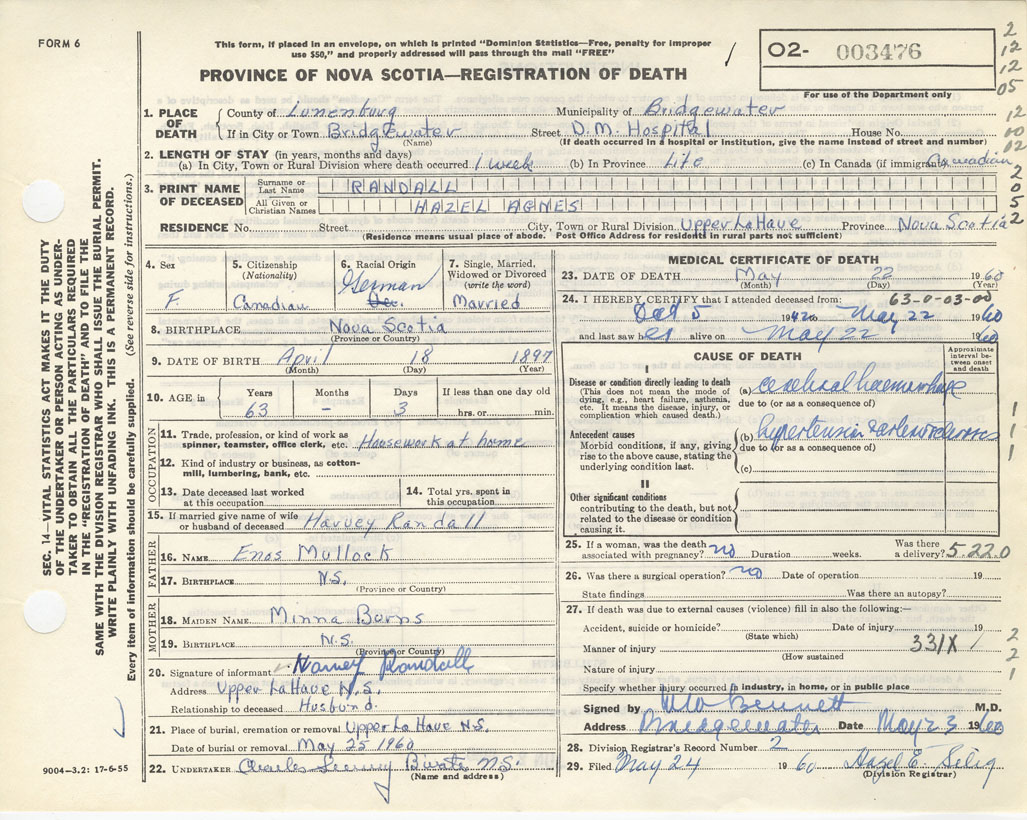 FORM 6
This form, if placed in an envelope, on which is printed "Dominion Statistics—Free, penalty for improper
use $50," and properly addressed will pass through the mail "FREE"
PROVINCE OF NOVA SCOTIA—REGISTRATION OF DEATH
O2- 003476
For use of the Department only
2
12
12
05
12
10
02
2
0
5
2
SEC. 14—VITAL STATISTICS ACT MAKES IT THE DUTY
OF THE UNDERTAKER OR PERSON ACTING AS UNDER-
TAKER TO OBTAIN ALL THE PARTICULARS REQUIRED
IN THE "REGISTRATION OF DEATH" AND TO FILE THE
SAME WITH THE DIVISION REGISTRAR WHO SHALL ISSUE THE BURIAL PERMIT.
WRITE PLAINLY WITH UNFADING INK. THIS IS A PERMANENT RECORD.
Every item of information should be carefully supplied. (See reverse side for instructions.)
1. PLACE OF DEATH
County of Lunenburg Municipality of Bridgewater
If in City or Town Bridgewater Street D.M. Hospital House No.
(Name) (If death occurred in a hospital or institution, give the name instead of street and number)
2. LENGTH OF STAY (in years, months and days)
(a) In City, Town or Rural Division where death occurred 1 week (b) In Province Life (c) In Canada (if immigrant) Canadian
3. PRINT NAME OF DECEASED
Surname or Last Name RANDALL
All Given or Christian Names HAZEL AGNES
RESIDENCE No. Street City, Town or Rural Division Upper LaHave Province Nova Scotia
(Residence means usual place of abode. Post Office Address for residents in rural parts not sufficient)
4. Sex F.
5. Citizenship (Nationality) Canadian
6. Racial Origin German
7. Single, Married, Widowed or Divorced (write the word) Married
8. BIRTHPLACE Nova Scotia
(Province or Country)
9. DATE OF BIRTH April 18 1897
(Month) (Day) (Year)
10. AGE in Years 63 Months - Days 3 If less than one day old hrs. or min.
OCCUPATION
11. Trade, profession, or kind of work as
spinner, teamster, office clerk, etc. Housework at home
12. Kind of industry or business, as cotton-
mill, lumbering, bank, etc.
13. Date deceased last worked at this occupation
14. Total yrs. spent in this occupation
15. If married give name of wife
or husband of deceased Harvey Randall
FATHER
16. NAME Enos Mullock
17. BIRTHPLACE N.S.
(Province or Country)
MOTHER
18. MAIDEN NAME Minna Borns
19. BIRTHPLACE N.S.
(Province or Country)
20. Signature of informant Harvey Randall
Address Upper LaHave N.S.
Relationship to deceased Husbund.
21. Place of burial, cremation or removal Upper La Have N.S.
Date of burial or removal May 25 1960
22. UNDERTAKER Charles N.S.
(Name and address)
9004—3.2: 17-6-55
MEDICAL CERTIFICATE OF DEATH
23. DATE OF DEATH May 22 1960
(Month) (Day) (Year)
63-0-03-00
24. I HEREBY CERTIFY that I attended deceased from:
Oct 5 1942 to May 22 1960
and last saw her alive on May 22 1960
CAUSE OF DEATH
Approximate interval between onset and death
I
Disease or condition directly leading to death
(This does not mean the mode of
dying, e.g., heart failure, asthenia,
etc. It means the disease, injury, or
complication which caused death.)
(a) cerebral haemorrhage
due to (or as a consequence of)
Antecedent causes
Morbid conditions, if any, giving
rise to the above cause, stating the
underlying condition last.
(b) hypertension
due to (or as a consequence of)
(c)
II
Other significant conditions
contributing to the death, but not
related to the disease or condition
causing it.
1
1
1
25. If a woman, was the death
associated with pregnancy? no Duration weeks. Was there a delivery? 5.22.0
26. Was there a surgical operation? no Date of operation 19
State findings Was there an autopsy?
27. If death was due to external causes (violence) fill in also the following:—
Accident, suicide or homicide? Date of injury 19
(State which)
Manner of injury 331X
(How sustained
Nature of injury
Specify whether injury occurred in industry, in home, or in public place
2
2
1
Signed by Bennett M.D.
Address Bridgewater Date May 23 1960
28. Division Registrar's Record Number 2
29. Filed May 24 1960 Hazel E. Selig
(Division Registrar)